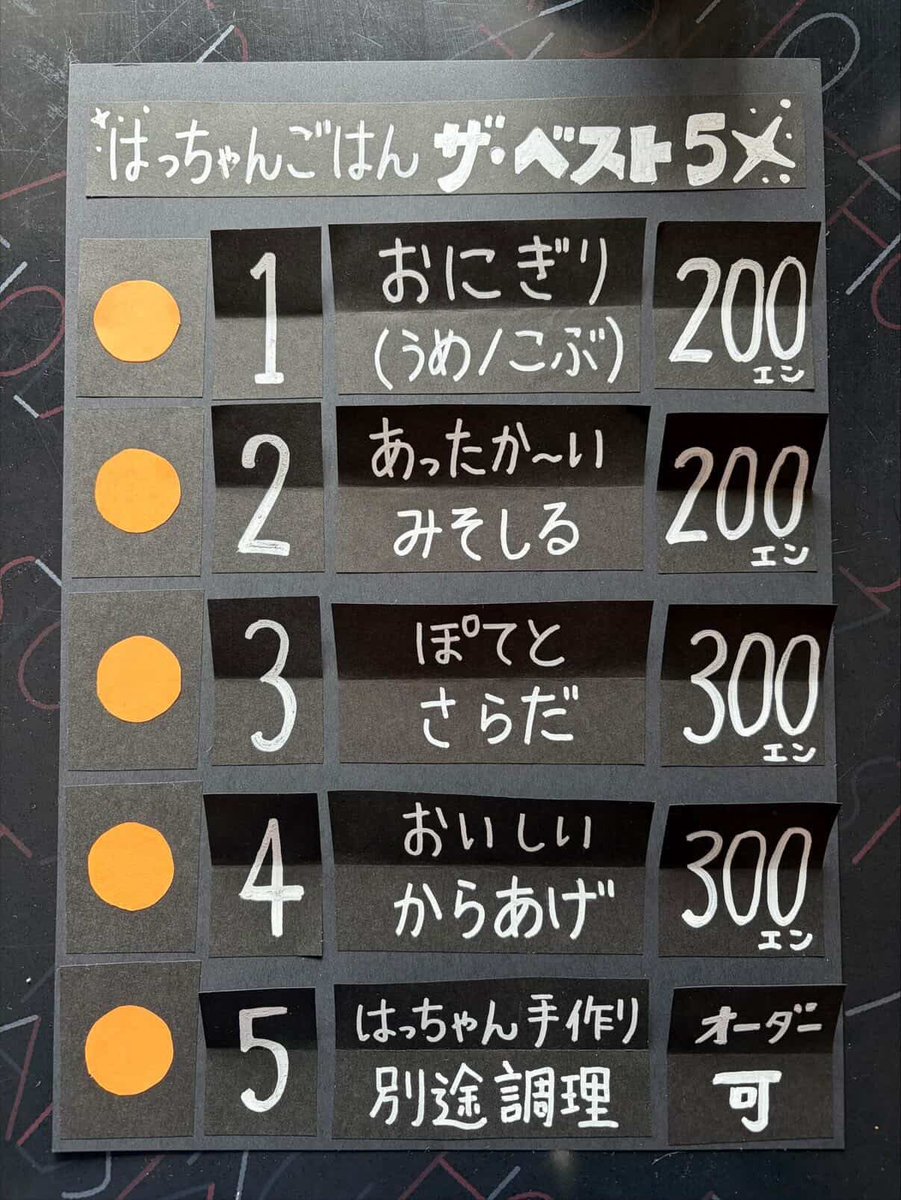 はっちゃんごはん ザ・ベスト5
1
おにぎり
(うめ/こぶ)
200
エン
2
あったか〜い
みそしる
200
エン
3
ぽてと
さらだ
300
エン
4
おいしい
からあげ
300
エン
5
はっちゃん手作り
別途調理
オーダー
可